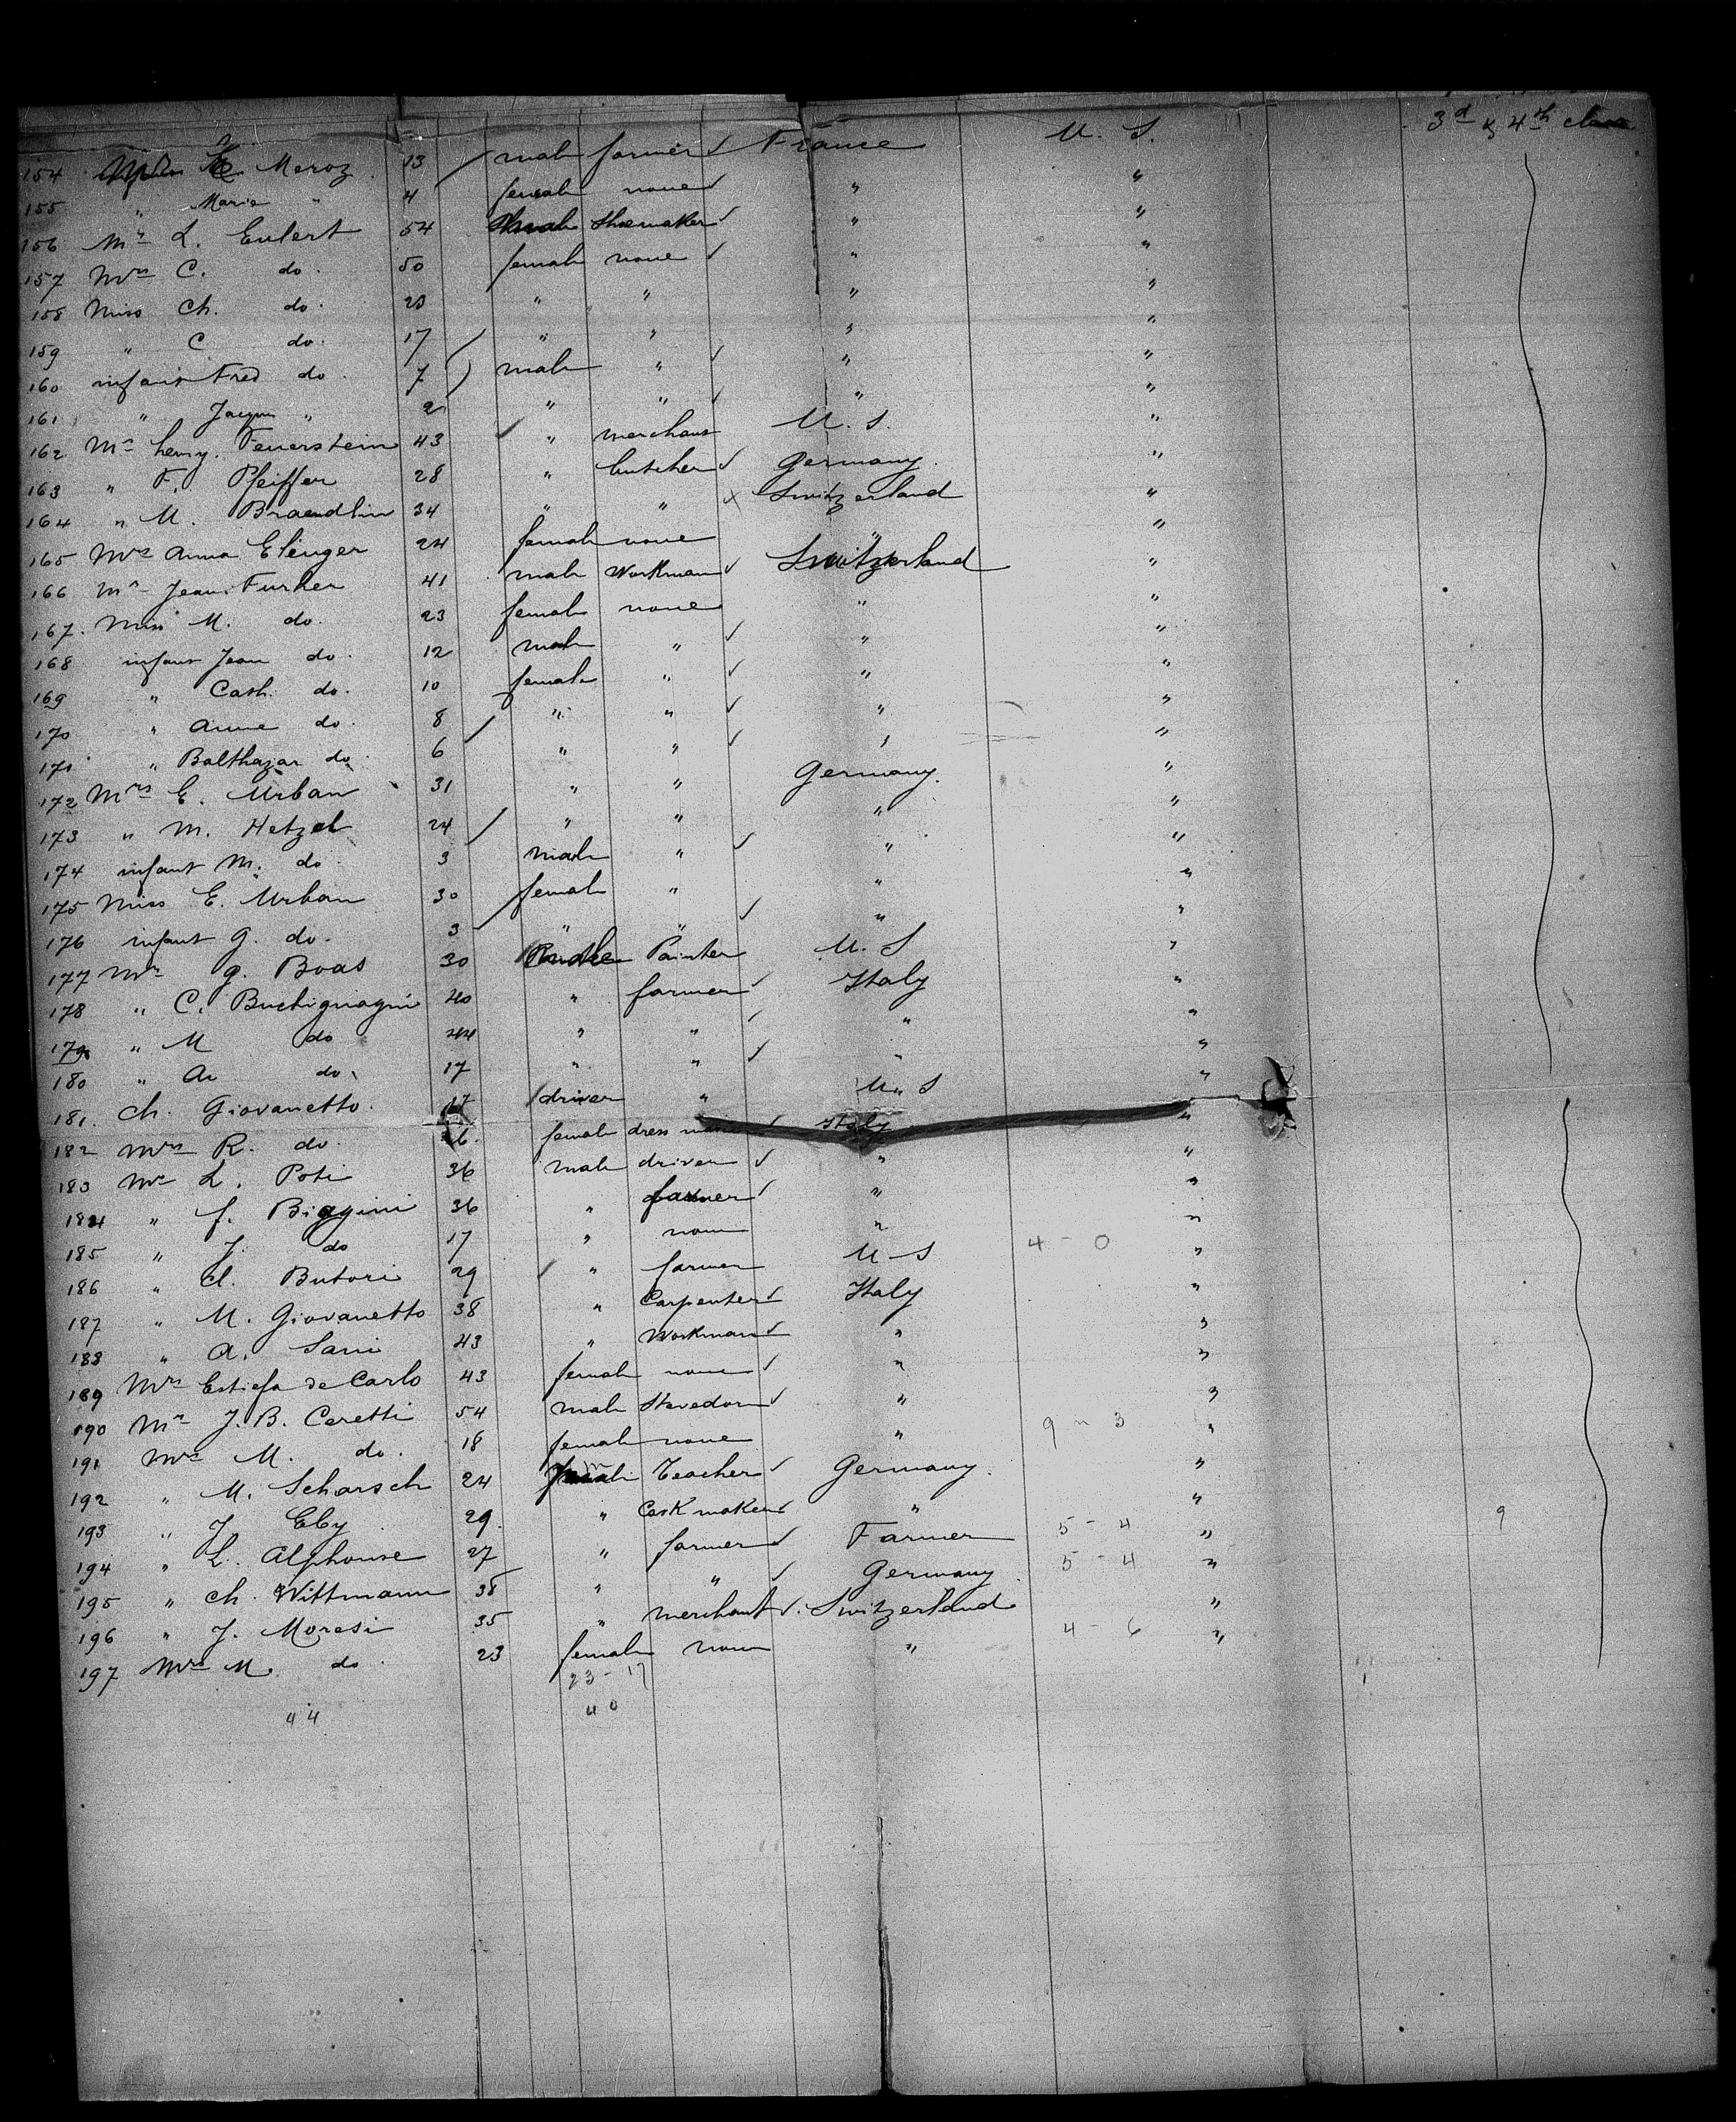 3d & 4th class
154 Meroz 13 male farmer ✓ France U. S.
155 " Marie " 4 female none ✓ " "
156 Mr L. Eulert 54 male Shoemaker ✓ " "
157 Mrs C. do. 50 female none ✓ " "
158 Miss Ch. do. 23 " " " "
159 " C do. 17 " " " "
160 infant Fred do. 7 male " ✓ " "
161 " " 2 " " ✓ " "
162 Mr henry. Feuerstein 43 " merchant U. S. "
163 " F. Pfeiffer 28 " butcher ✓ Germany. "
164 " M. Braendlin 34 " " Switzerland "
165 Mrs Anna Elinger 24 female none " "
166 Mr Jean Furher 41 male Workman ✓ Switzerland "
167. Miss M. do. 23 female none " "
168 infant Jean do. 12 male " ✓ " "
169 " Cath. do. 10 female " ✓ " "
170 " Anne do. 8 " " ✓ " "
171 " Balthazar do. 6 " " ✓ " "
172 Mrs E. Urban 31 " " Germany. "
173 " M. Hetzel 24 " " " "
174 infant M. do. 3 male " ✓ " "
175 Miss E. Urban 30 female " " "
176 infant G. do. 3 " " ✓ " "
177 Mr G. Boas 30 Painter U. S "
178 " C. Buchignagni 40 " farmer ✓ Italy "
179 " M do 44 " " ✓ " "
180 " A. do. 17 " " ✓ " "
181. Ch. Giovanetto. driver " U. S "
182 Mrs R. do. female dress Italy "
183 Mr L. Poti 36 male driver ✓ " "
184 " f. Biggini 36 " farmer ✓ " "
185 " J. do 17 " none " "
186 " A. Butori 29 " farmer U S 4 - 0 "
187 " M. Giovanetto 38 " Carpenter ✓ Italy "
188 " A. Sani 43 " Workman ✓ " "
189 Mrs Estiefa de Carlo 43 female none ✓ " "
190 Mr J. B. Ceretti 54 male Stevedore ✓ " "
191 Mrs M. do. 18 female none " 9 - 3 "
192 " M. Scharsch 24 Teacher ✓ Germany. "
193 " J Eby 29. " Cask maker ✓ " "
194 " L. Alphonse 27 " farmer ✓ Farmer 5 - 4 " 9
195 " Ch. Wittmann 38 " " ✓ Germany 5 - 4 "
196 " J. Moresi 35 " merchant ✓ Switzerland "
197 Mrs M. do. 23 female none " 4 - 6 "
23 - 17
44 40